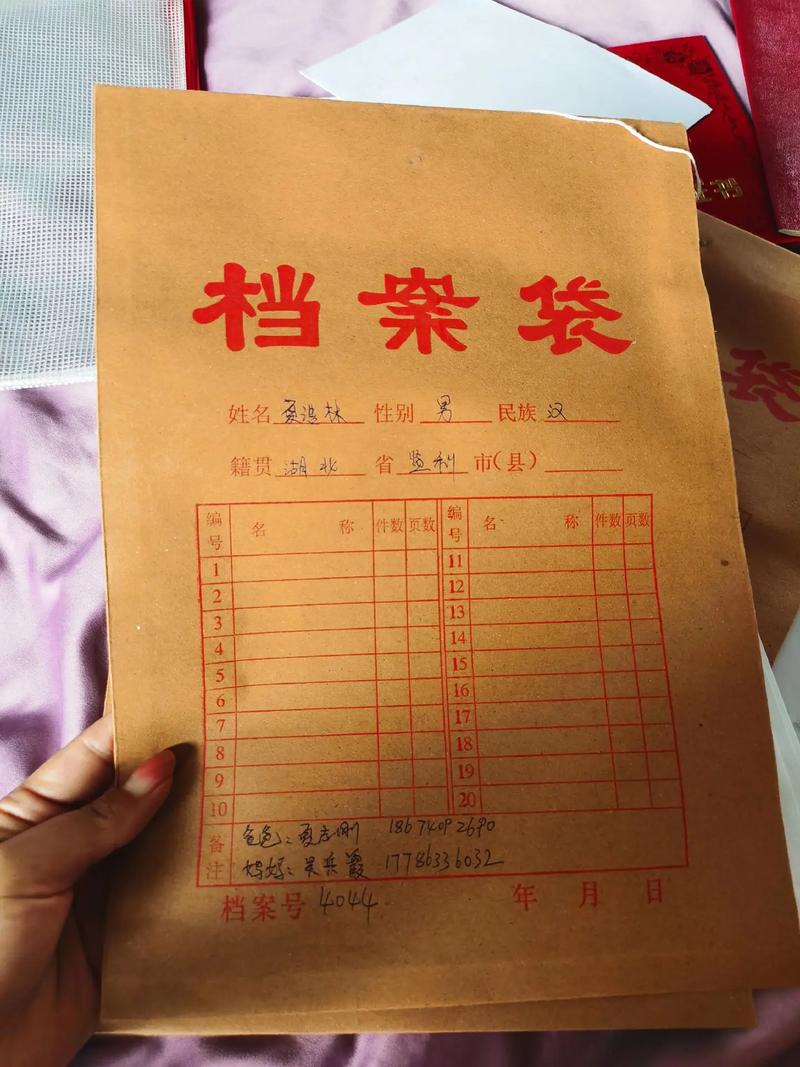 档案袋
姓名 夏浩林 性别 男 民族 汉
籍贯 湖北 省 监利 市(县)
编号 名 称 件数 页数 编号 名 称 件数 页数
1 11
2 12
3 13
4 14
5 15
6 16
7 17
8 18
9 19
10 20
备注 爸爸：夏 刚 18674092690
妈妈：吴 霞 17786336032
档案号 4044 年 月 日